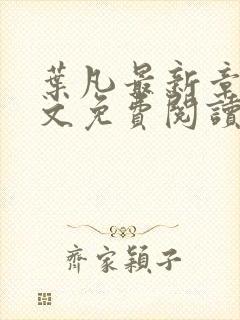 葉凡最新章
文免費閱讀
齊家穎子